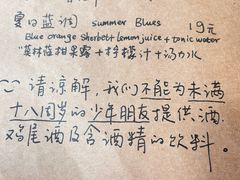 夏日蓝调 Summer Blues 19元
Blue orange Sherbett Lemon juice + tonic water
英林蓝柑果露 + 柠檬汁 + 汤力水
请谅解,我们不能为未满
十八周岁的少年朋友提供酒
鸡尾酒及含酒精的饮料。